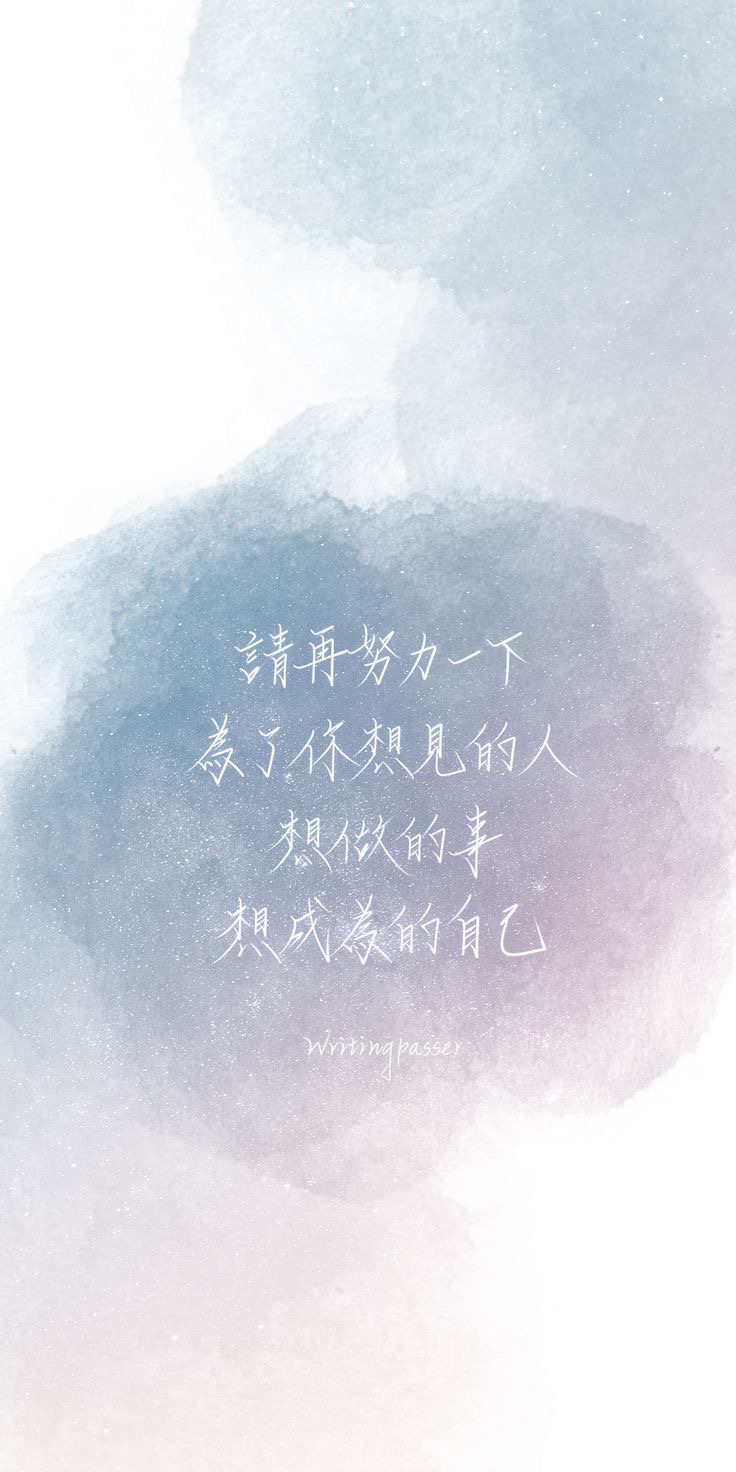 請再努力一下
為了你想見的人
想做的事
想成為的自己
Writingpasser